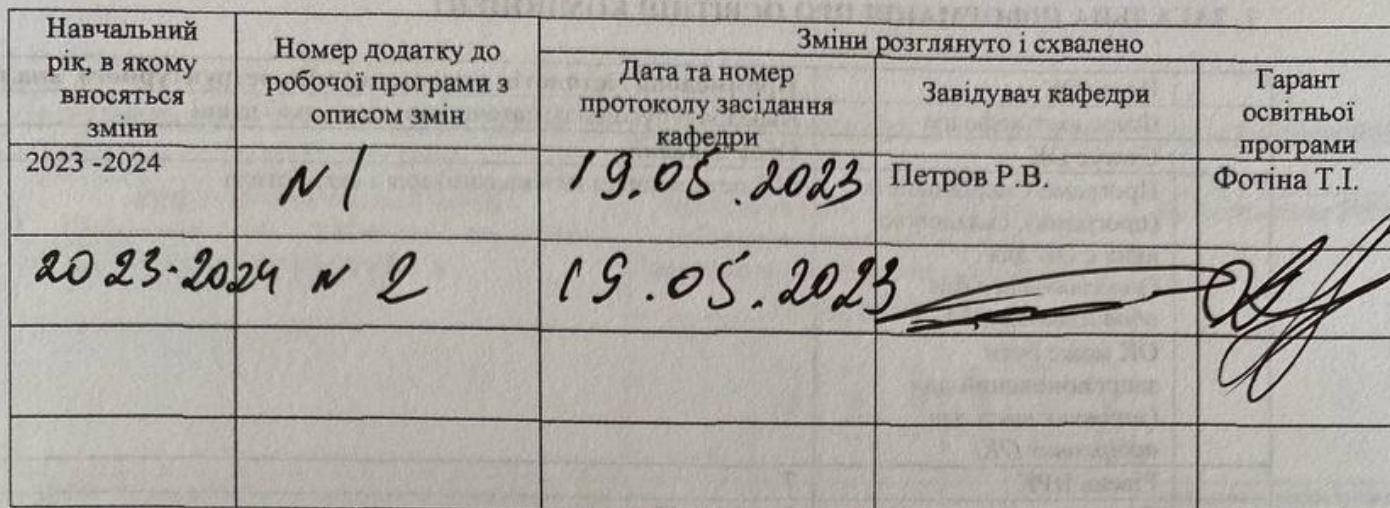 Навчальний
рік, в якому
вносяться
зміни
Номер додатку до
робочої програми з
описом змін
Зміни розглянуто і схвалено
Дата та номер
протоколу засідання
кафедри
Завідувач кафедри
Гарант
освітньої
програми
2023 -2024
N1
19.05.2023
Петров Р.В.
Фотіна Т.І.
2023-2024
N 2
19.05.2023